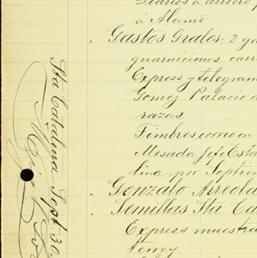 Diarios á arriero p
á Alamo
Gastos Grales, 2 ga
guarniciones, carr
Express y telegram
Gomez Palacio d
razas,
Timbres como en
Mesada José Esta
lina por Septiem
Gonzalo Arreola
Semillas Sta Ca
Express muestra
terrey
Sta Catalina Sept. 30